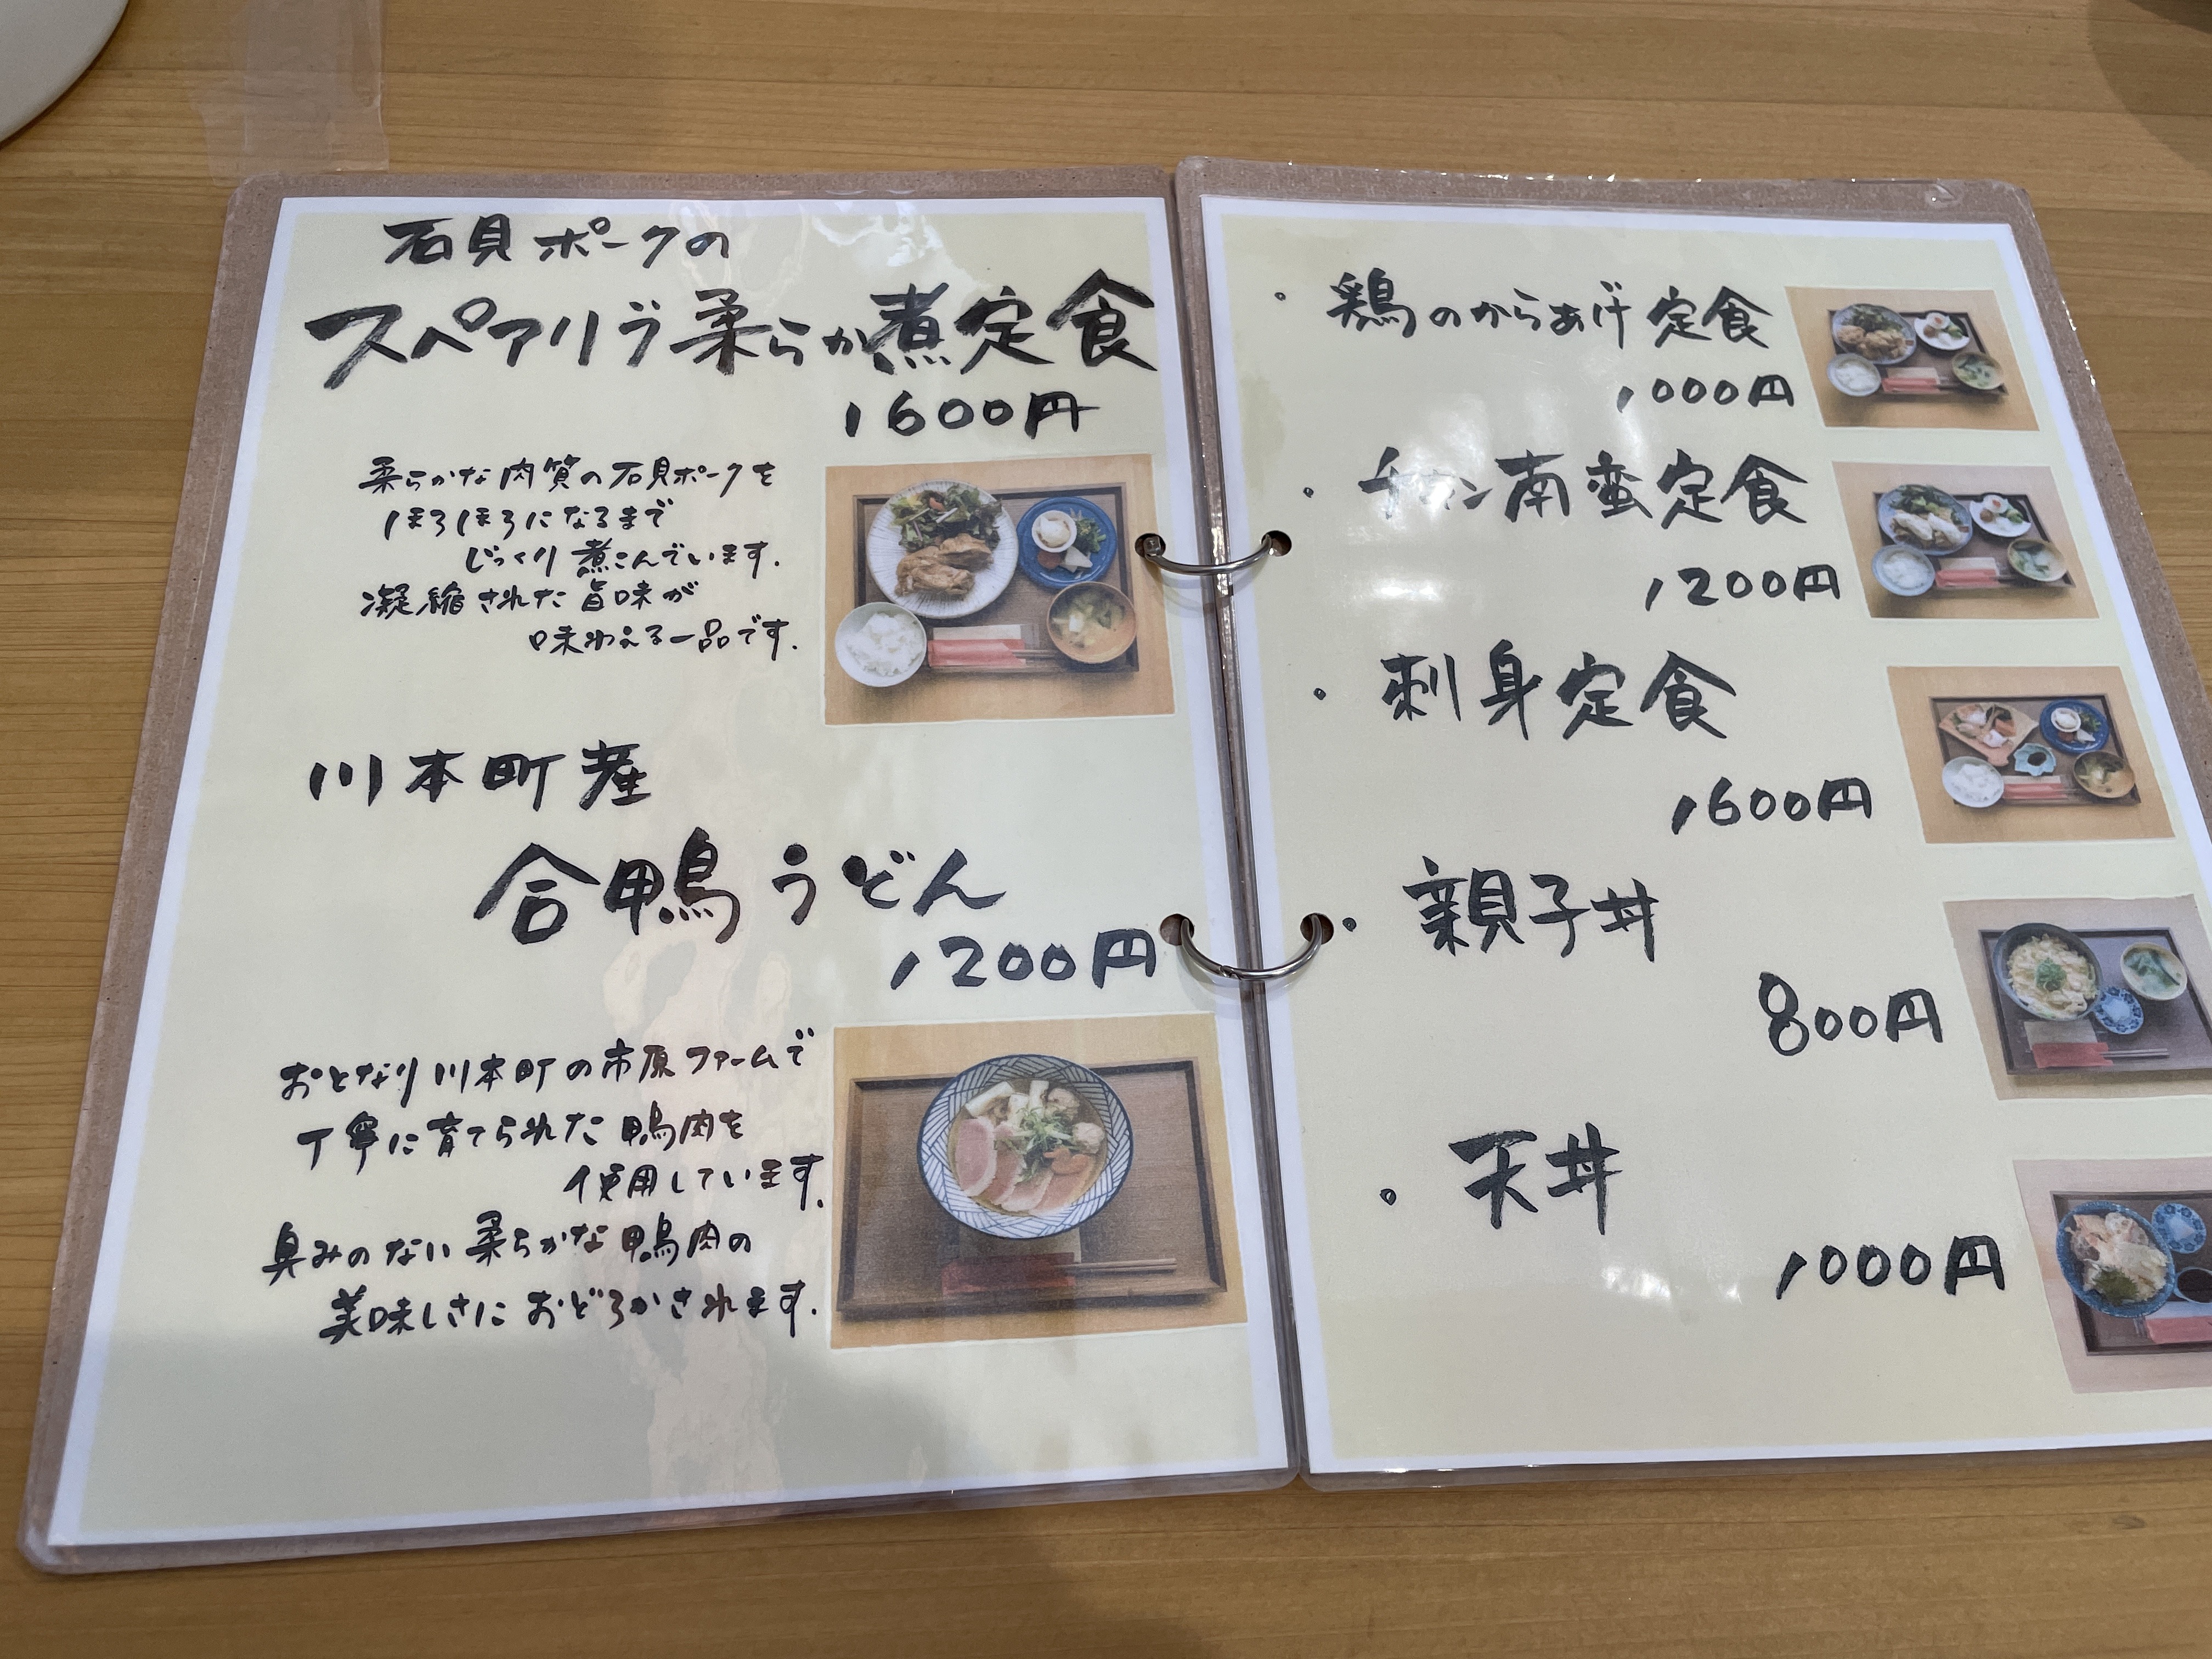 石貝ポークの
スペアリブ柔らか煮定食
1600円
柔らかな肉質の石貝ポークを
ほろほろになるまで
じっくり煮こんでいます.
凝縮された旨味が
味わえる一品です.
川本町産
合鴨うどん
1200円
おとなり川本町の市原ファームで
丁寧に育てられた鴨肉を
使用しています.
臭みのない柔らかな鴨肉の
美味しさにおどろかされます.
・鶏のからあげ定食
1000円
・チキン南蛮定食
1200円
・刺身定食
1600円
・親子丼
800円
・天丼
1000円